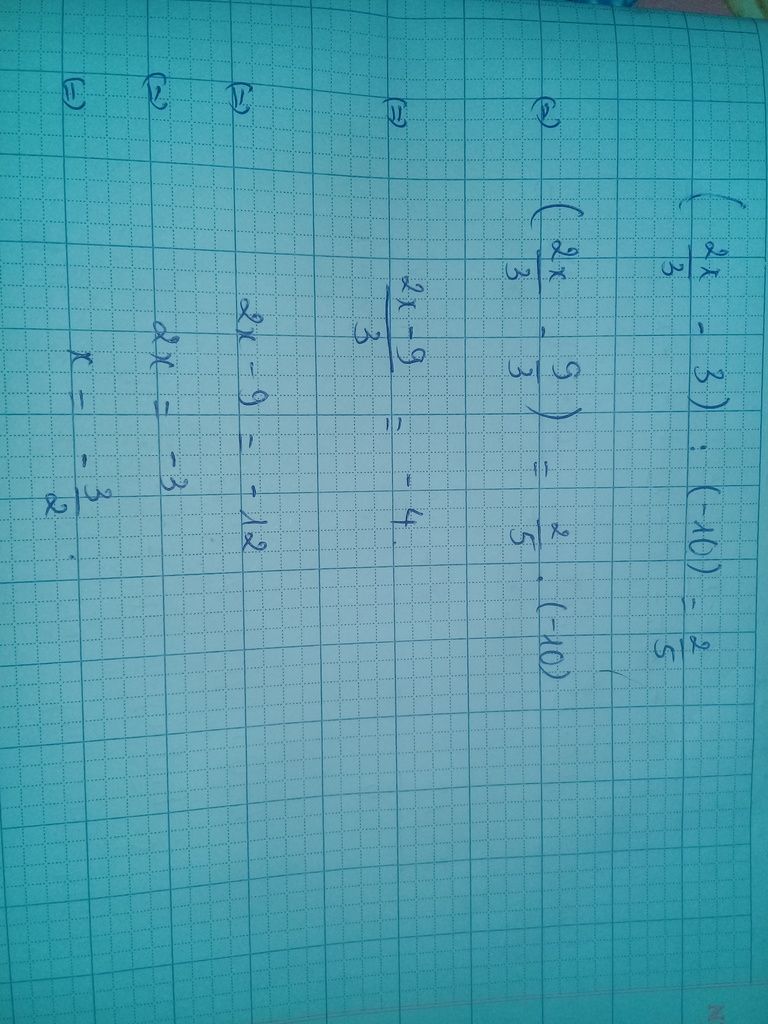 (2x/3 - 3) : (-10) = 2/5
(=) (2x/3 - 9/3) = 2/5 . (-10)
(=) 2x - 9/3 = -4
(=) 2x - 9 = -12
(=) 2x = -3
(=) x = -3/2.